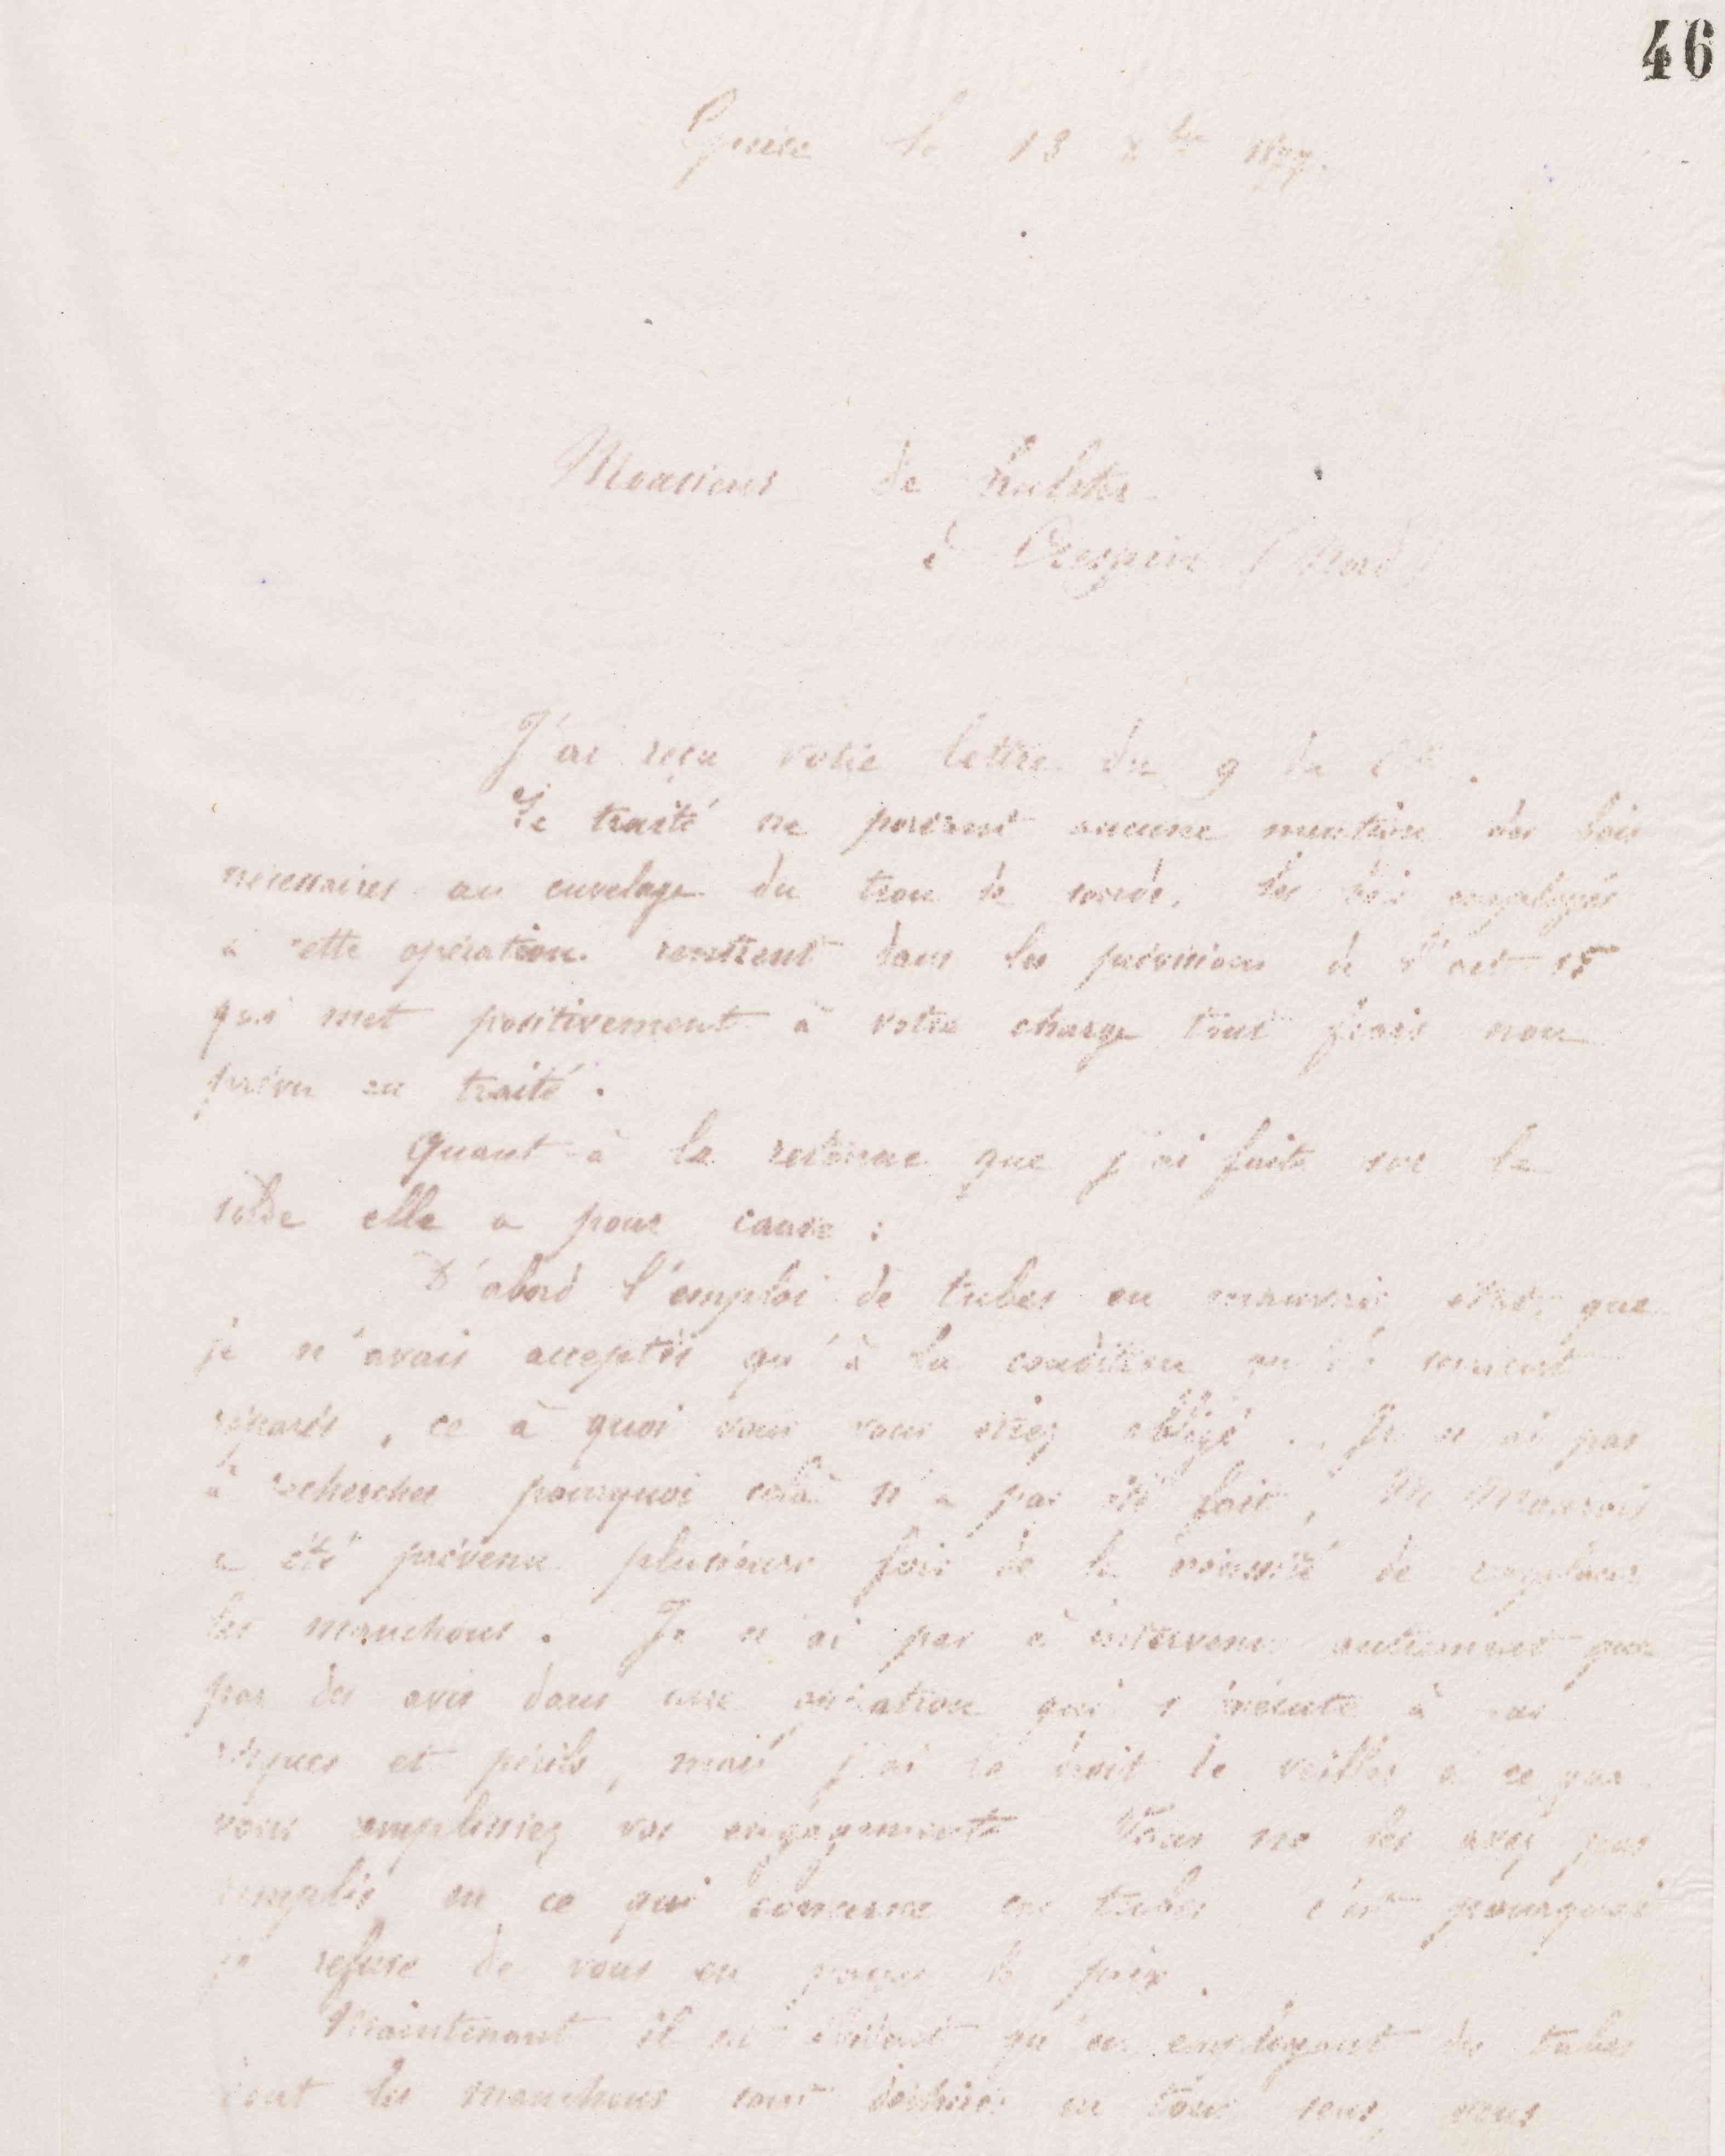 46
le 13 xbre 1877.
Monsieur de hulster
à Crespin (Nord)
J'ai reçu votre lettre du 9 de ct.
Le traité ne portant aucune mention des bois
nécessaires au cuvelage du trou de sonde, les bois employés
à cette opération rentrent dans les prévisions de l'art 15
qui met positivement à votre charge tout frais non
prévu au traité.
Quant à la retenue que j'ai faite sur le
solde elle a pour cause :
D'abord l'emploi de tubes en mauvais état, que
je n'avais acceptés qu'à la condition qu'ils seraient
réparés, ce à quoi vous vous étiez obligé. Je n'ai pas
à rechercher pourquoi cela n'a pas été fait, Mr
a été prévenu plusieurs fois de la nécessité de remplacer
les manchons. Je n'ai pas à intervenir autrement que
par des avis dans une opération qui s'exécute à vos
risques et périls, mais j'ai le droit de veiller à ce que
vous remplissiez vos engagements. Vous ne les avez pas
remplis en ce qui concerne ces tubes c'est pourquoi
je refuse de vous en payer le prix.
Maintenant il est évident qu'en employant des tubes
dont les manchons sont déchirés en tous sens, vous